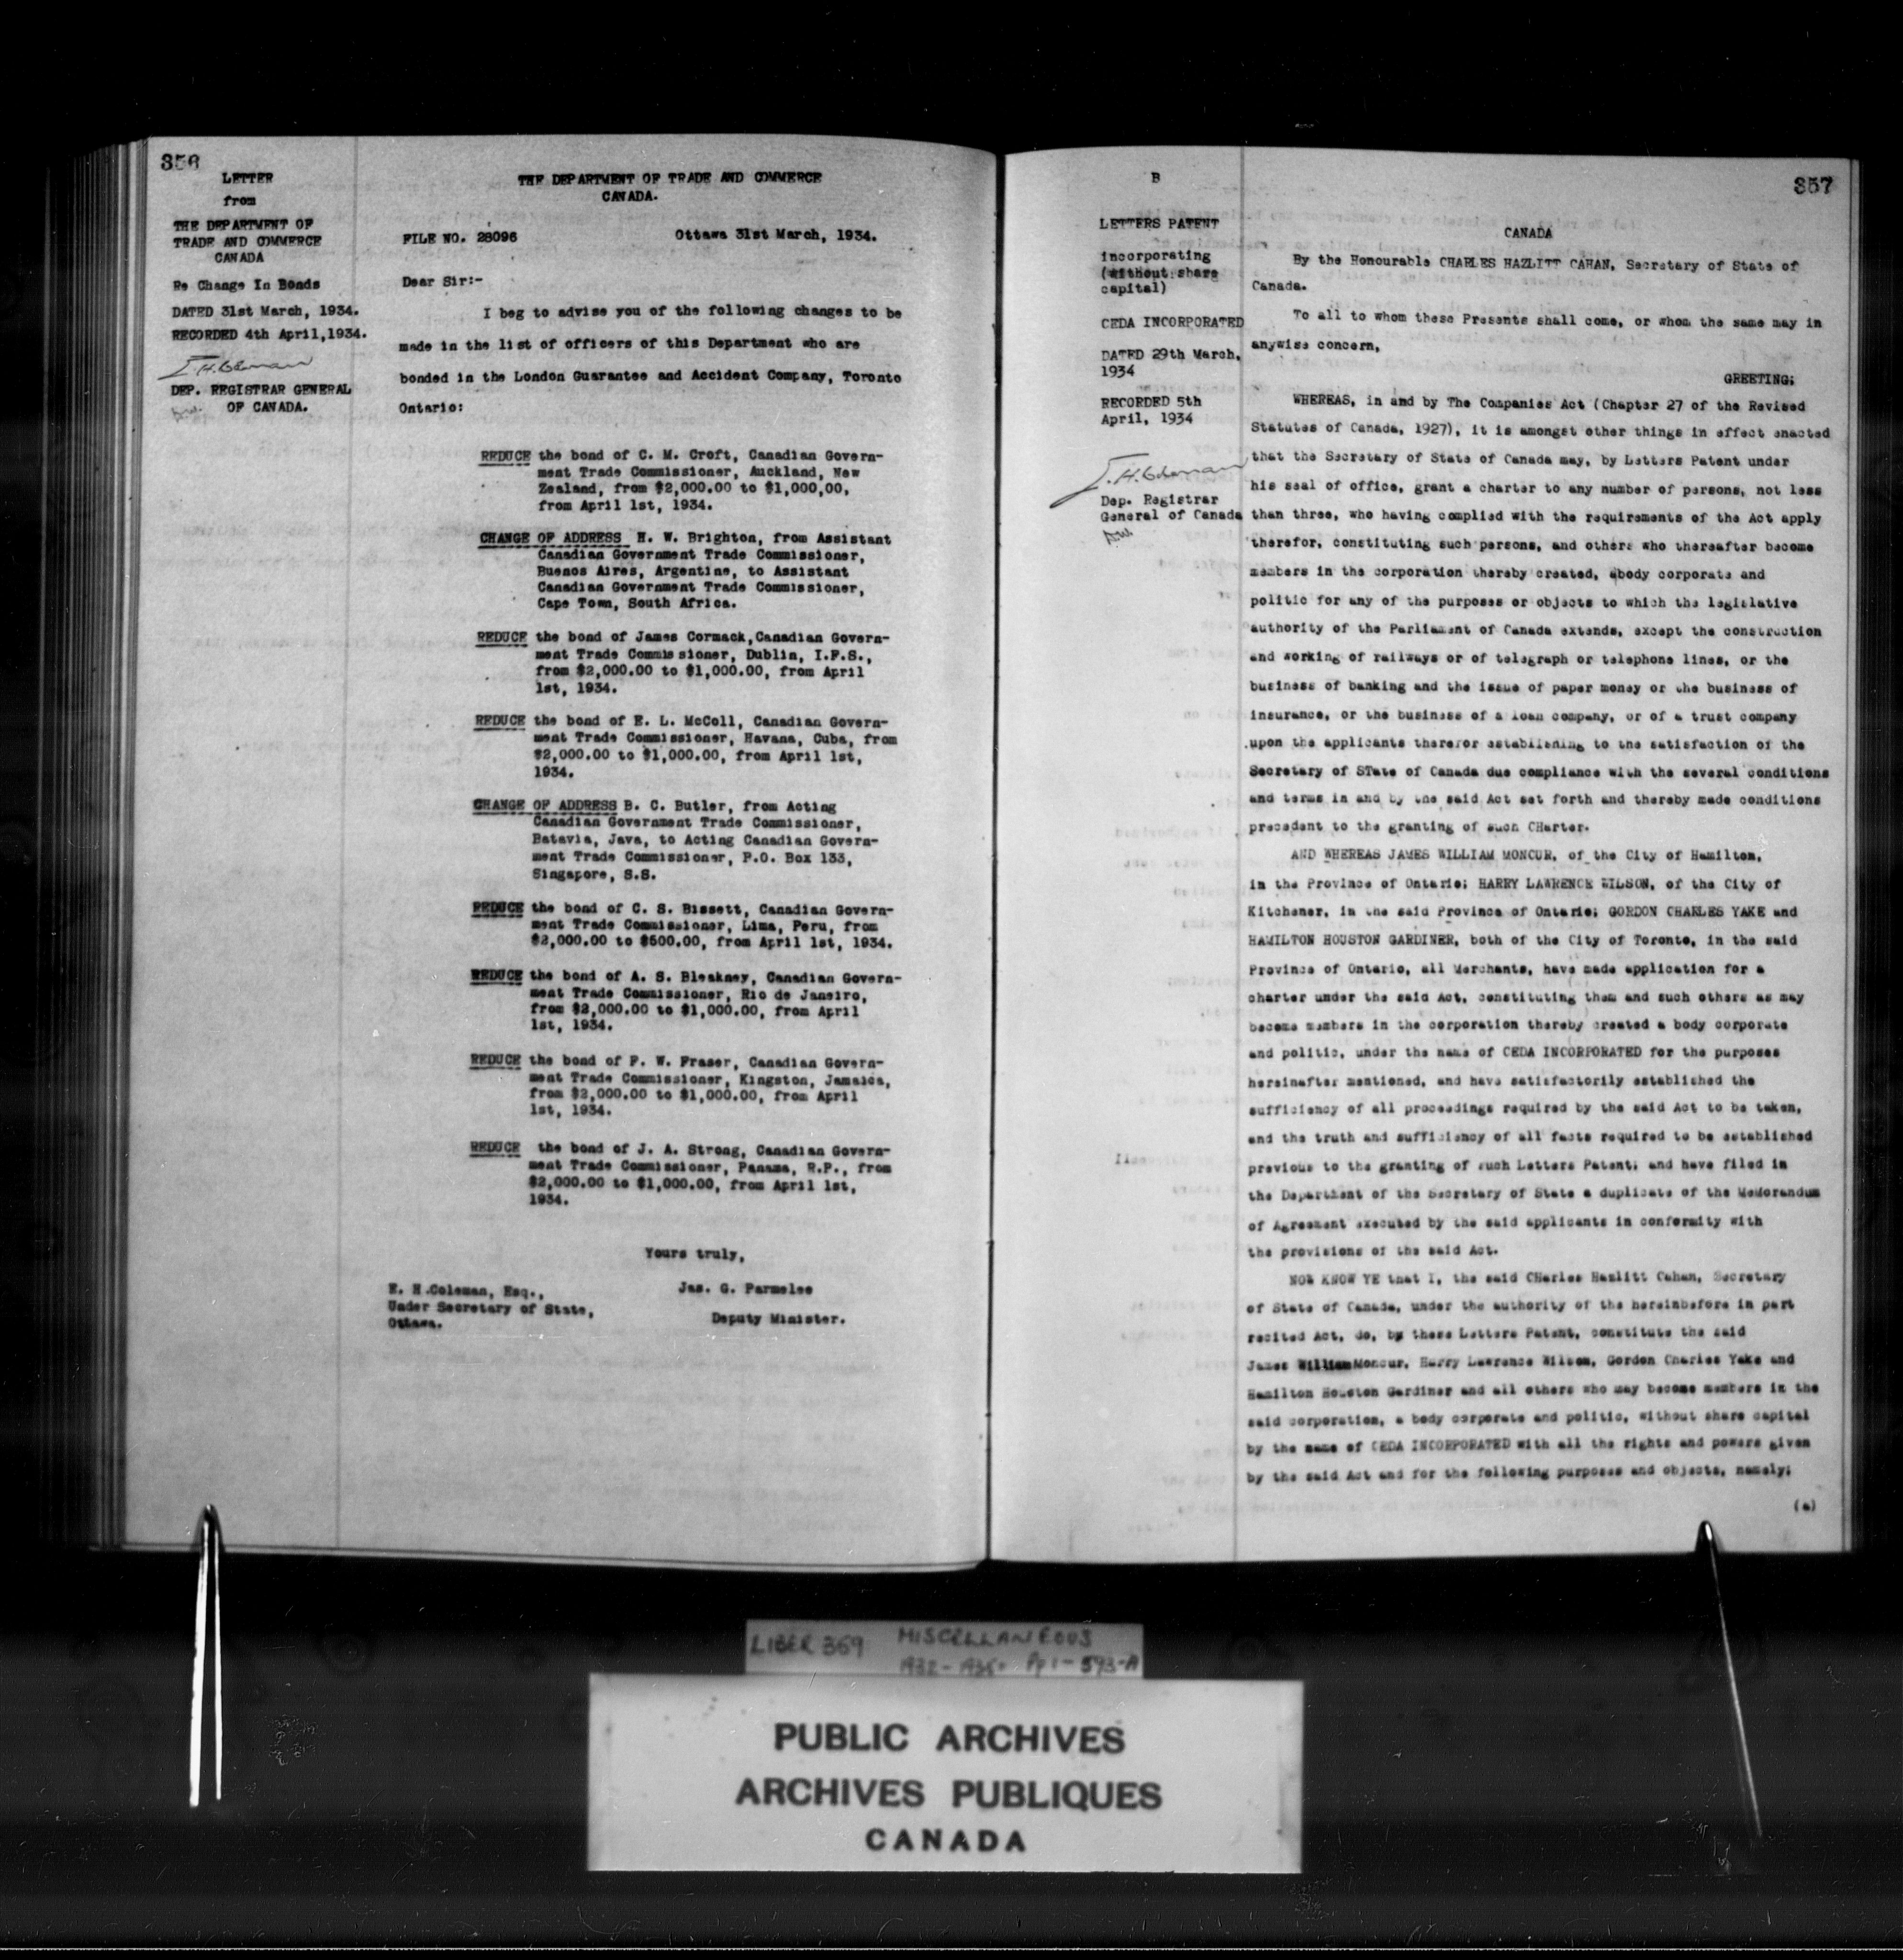 356
LETTER
from
THE DEPARTMENT OF
TRADE AND COMMERCE
CANADA
Re Change In Bonds
DATED 31st March, 1934.
RECORDED 4th April,1934.
DEP. REGISTRAR GENERAL
OF CANADA.
THE DEPARTMENT OF TRADE AND COMMERCE
CANADA.
FILE NO. 28096 Ottawa 31st March, 1934.
Dear Sir:-
I beg to advise you of the following changes to be
made in the list of officers of this Department who are
bonded in the London Guarantee and Accident Company, Toronto
Ontario:
REDUCE the bond of C. M. Croft, Canadian Govern-
ment Trade Commissioner, Auckland, New
Zealand, from $2,000.00 to $1,000,00,
from April 1st, 1934.
CHANGE OF ADDRESS H. W. Brighton, from Assistant
Canadian Government Trade Commissioner,
Buenos Aires, Argentine, to Assistant
Canadian Government Trade Commissioner,
Cape Town, South Africa.
REDUCE the bond of James Cormack,Canadian Govern-
ment Trade Commissioner, Dublin, I.F.S.,
from $2,000.00 to $1,000.00, from April
1st, 1934.
REDUCE the bond of E. L. McColl, Canadian Govern-
ment Trade Commissioner, Havana, Cuba, from
$2,000.00 to $1,000.00, from April 1st,
1934.
CHANGE OF ADDRESS B. C. Butler, from Acting
Canadian Government Trade Commissioner,
Batavia, Java, to Acting Canadian Govern-
ment Trade Commissioner, P.O. Box 133,
Singapore, S.S.
REDUCE the bond of C. S. Bissett, Canadian Govern-
ment Trade Commissioner, Lima, Peru, from
$2,000.00 to $500.00, from April 1st, 1934.
REDUCE the bond of A. S. Bleakney, Canadian Govern-
ment Trade Commissioner, Rio de Janeiro,
from $2,000.00 to $1,000.00, from April
1st, 1934.
REDUCE the bond of F. W. Fraser, Canadian Govern-
ment Trade Commissioner, Kingston, Jamaica,
from $2,000.00 to $1,000.00, from April
1st, 1934.
REDUCE the bond of J. A. Strong, Canadian Govern-
ment Trade Commissioner, Panama, R.P., from
$2,000.00 to $1,000.00, from April 1st,
1934.
Yours truly,
E. H.Coleman, Esq., Jas. G. Parmelee
Under Secretary of State,
Ottawa. Deputy Minister.
B
357
LETTERS PATENT
incorporating
(without share
capital)
CEDA INCORPORATED
DATED 29th March,
1934
RECORDED 5th
April, 1934
Dep. Registrar
General of Canada
CANADA
By the Honourable CHARLES HAZLITT CAHAN, Secretary of State of
Canada.
To all to whom these Presents shall come, or whom the same may in
anywise concern,
GREETING;
WHEREAS, in and by The Companies Act (Chapter 27 of the Revised
Statutes of Canada, 1927), it is amongst other things in effect enacted
that the Secretary of State of Canada may, by Letters Patent under
his seal of office, grant a charter to any number of persons, not less
than three, who having complied with the requirements of the Act apply
therefor, constituting such persons, and others who thereafter become
members in the corporation thereby created, abody corporate and
politic for any of the purposes or objects to which the legislative
authority of the Parliament of Canada extends, except the construction
and working of railways or of telegraph or telephone lines, or the
business of banking and the issue of paper money or the business of
insurance, or the business of a loan company, or of a trust company
upon the applicants therefor establishing to the satisfaction of the
Secretary of STate of Canada due compliance with the several conditions
and terms in and by the said Act set forth and thereby made conditions
precedent to the granting of such CHarter.
AND WHEREAS JAMES WILLIAM MONCUR, of the City of Hamilton,
in the Province of Ontario; HARRY LAWRENCE WILSON, of the City of
Kitchener, in the said Province of Ontario; GORDON CHARLES YAKE and
HAMILTON HOUSTON GARDINER, both of the City of Toronto, in the said
Province of Ontario, all Merchants, have made application for a
charter under the said Act, constituting them and such others as may
become members in the corporation thereby created a body corporate
and politic, under the name of CEDA INCORPORATED for the purposes
hereinafter mentioned, and have satisfactorily established the
sufficiency of all proceedings required by the said Act to be taken,
and the truth and sufficiency of all facts required to be established
previous to the granting of such Letters Patent; and have filed in
the Department of the Secretary of State a duplicate of the MeMorandum
of Agreement executed by the said applicants in conformity with
the provisions of the said Act.
NOW KNOW YE that I, the said CHarles Hazlitt Cahan, Secretary
of State of Canada, under the authority of the hereinbefore in part
recited Act, do, by these Letters Patent, constitute the said
James WilliamMoncur, Harry Lawrence Wilson, Gordon Charles Yake and
Hamilton Houston Gardiner and all others who may become members in the
said corporation, a body corporate and politic, without share capital
by the name of CEDA INCORPORATED with all the rights and powers given
by the said Act and for the following purposes and objects, namely;
(a)
LIBER 369 MISCELLANEOUS
1932-1935 Pp 1-593-A
PUBLIC ARCHIVES
ARCHIVES PUBLIQUES
CANADA